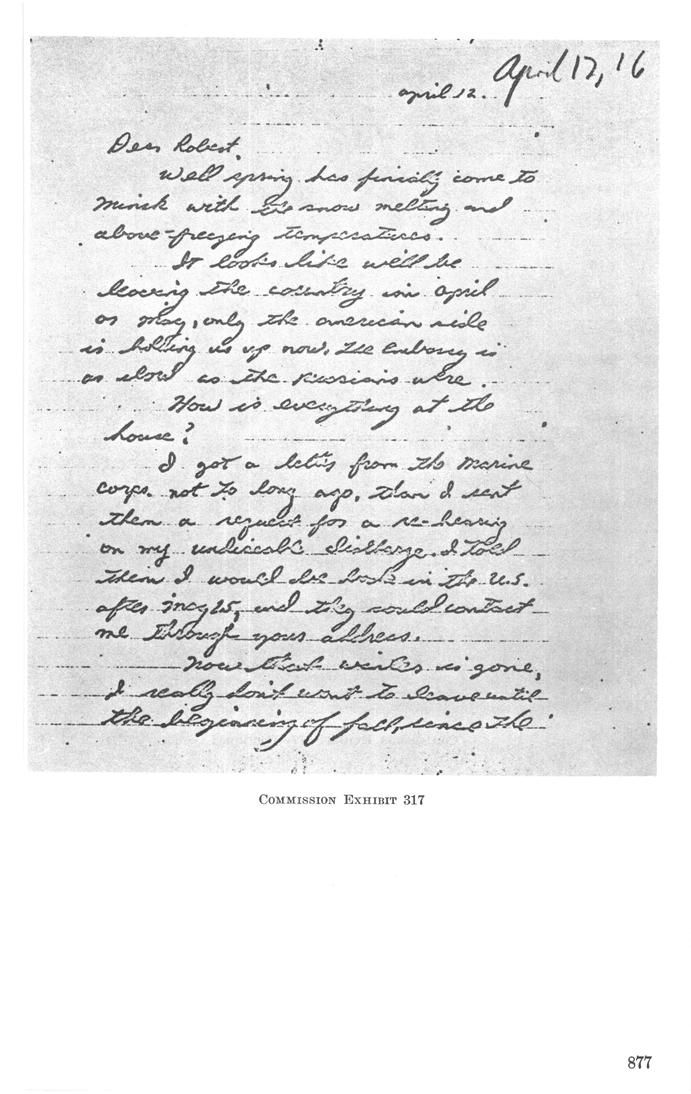 April 12, 16
april 12.
Dear Robert,
Well spring has finially come to
Minsk with the snow melting and
above-freezing temperatures.
It looks like we'll be
leaveing the country in april
or may, only the american side
is holding us up now. The Embassy is
as slow as the russians were.
How is everything at the
house?
I got a letter from the Marine
corps. not to long ago, than I sent
them a request for a re-hearing
on my discharge. I told
them I would be back in the U.S.
after may 25, and they could contact
me through your address.
Now that winter is gone,
I really don't want to leave until
the beginning of fall, since the
COMMISSION EXHIBIT 317
877